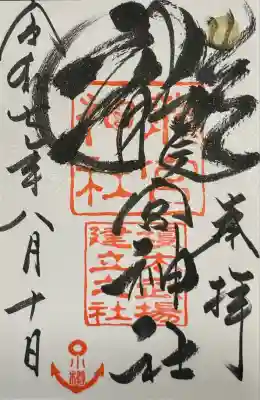 奉拝
龍宮神社
榎本武揚
建立之社
令和七年八月十日
小樽